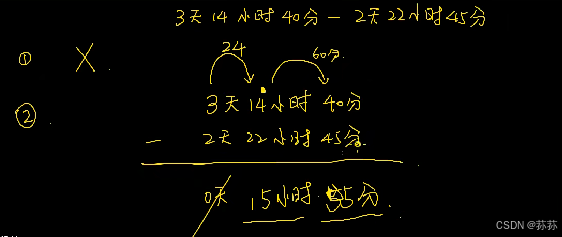 3天14小时40分-2天22小时45分
① X.
24 60分.
② 3天14小时40分
- 2天22小时45分.
0天 15小时 55分.
CSDN @荪荪